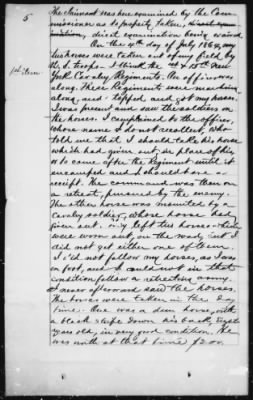 5
The Claimant was here examined by the Com-
missioner as to property taken,
direct examination being waived
On the 4th of day of July 1864, my
two horses were taken out of my field by
the U.S. troops. I think the 1st & 15th New
1st item
York Cavalry Regiments. An officer was
along. These Regiments were marching
along, and stopped and got my horses.
I was present and saw the soldiers on
the horses. I complained to the officer,
whose name I do not recollect, who
told me that I should take the horse
which had given out, in place of this,
or to come after the Regiment until it
encamped and I should have a
receipt. The command was then on
a retreat, pursued by the enemy.
The other horse was mounted by a
cavalry soldier, whose horse had
given out. They left two horses which
were worn out, on the road, but I
did not get either one of them.
I did not follow my horses, as I was
on foot, and I could not in that
condition follow a retreating army.
I never afterward saw the horses.
The horses were taken in the day
time. One was a dun horse, with
a black stripe down his back, eight
years old, in very good condition. He
was worth at that time $200.